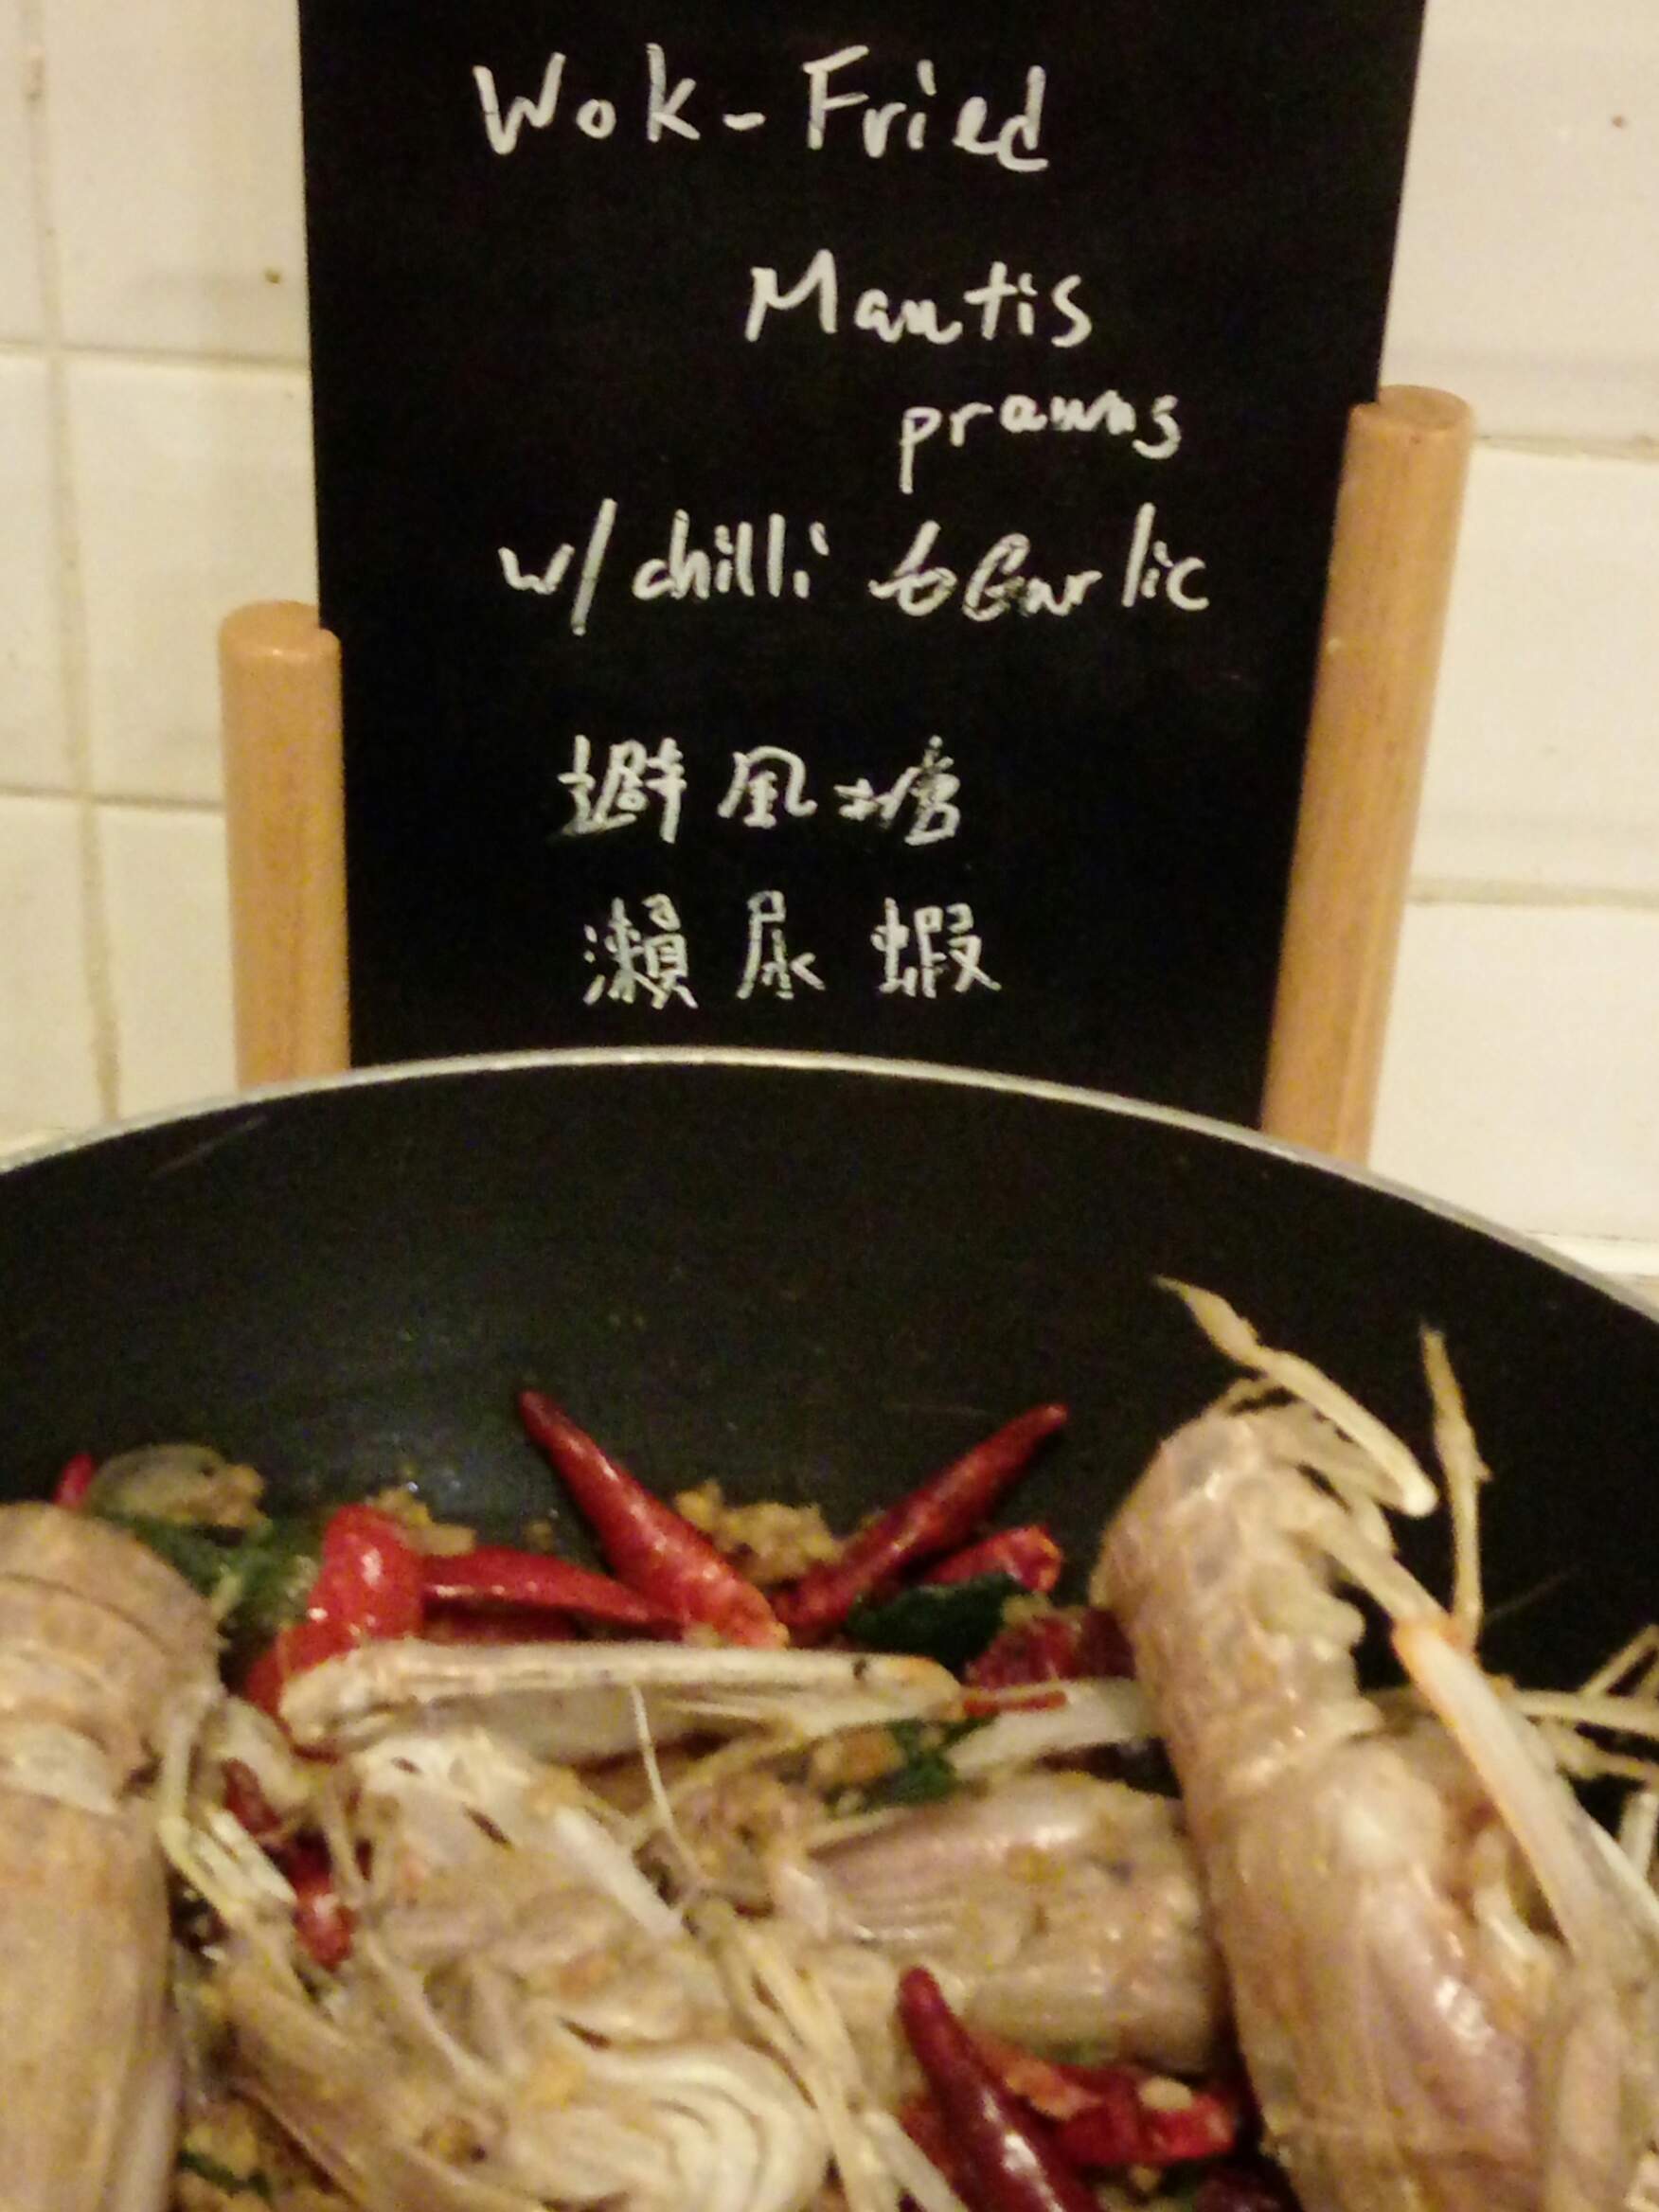 Wok-Fried
Mantis
prawns
w/ chilli & Garlic
避風塘
瀨尿蝦